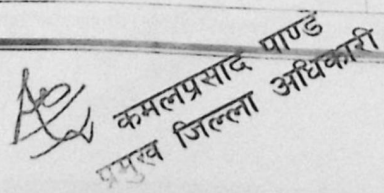 कमलप्रसाद पाण्डे
प्रमुख जिल्ला अधिकारी